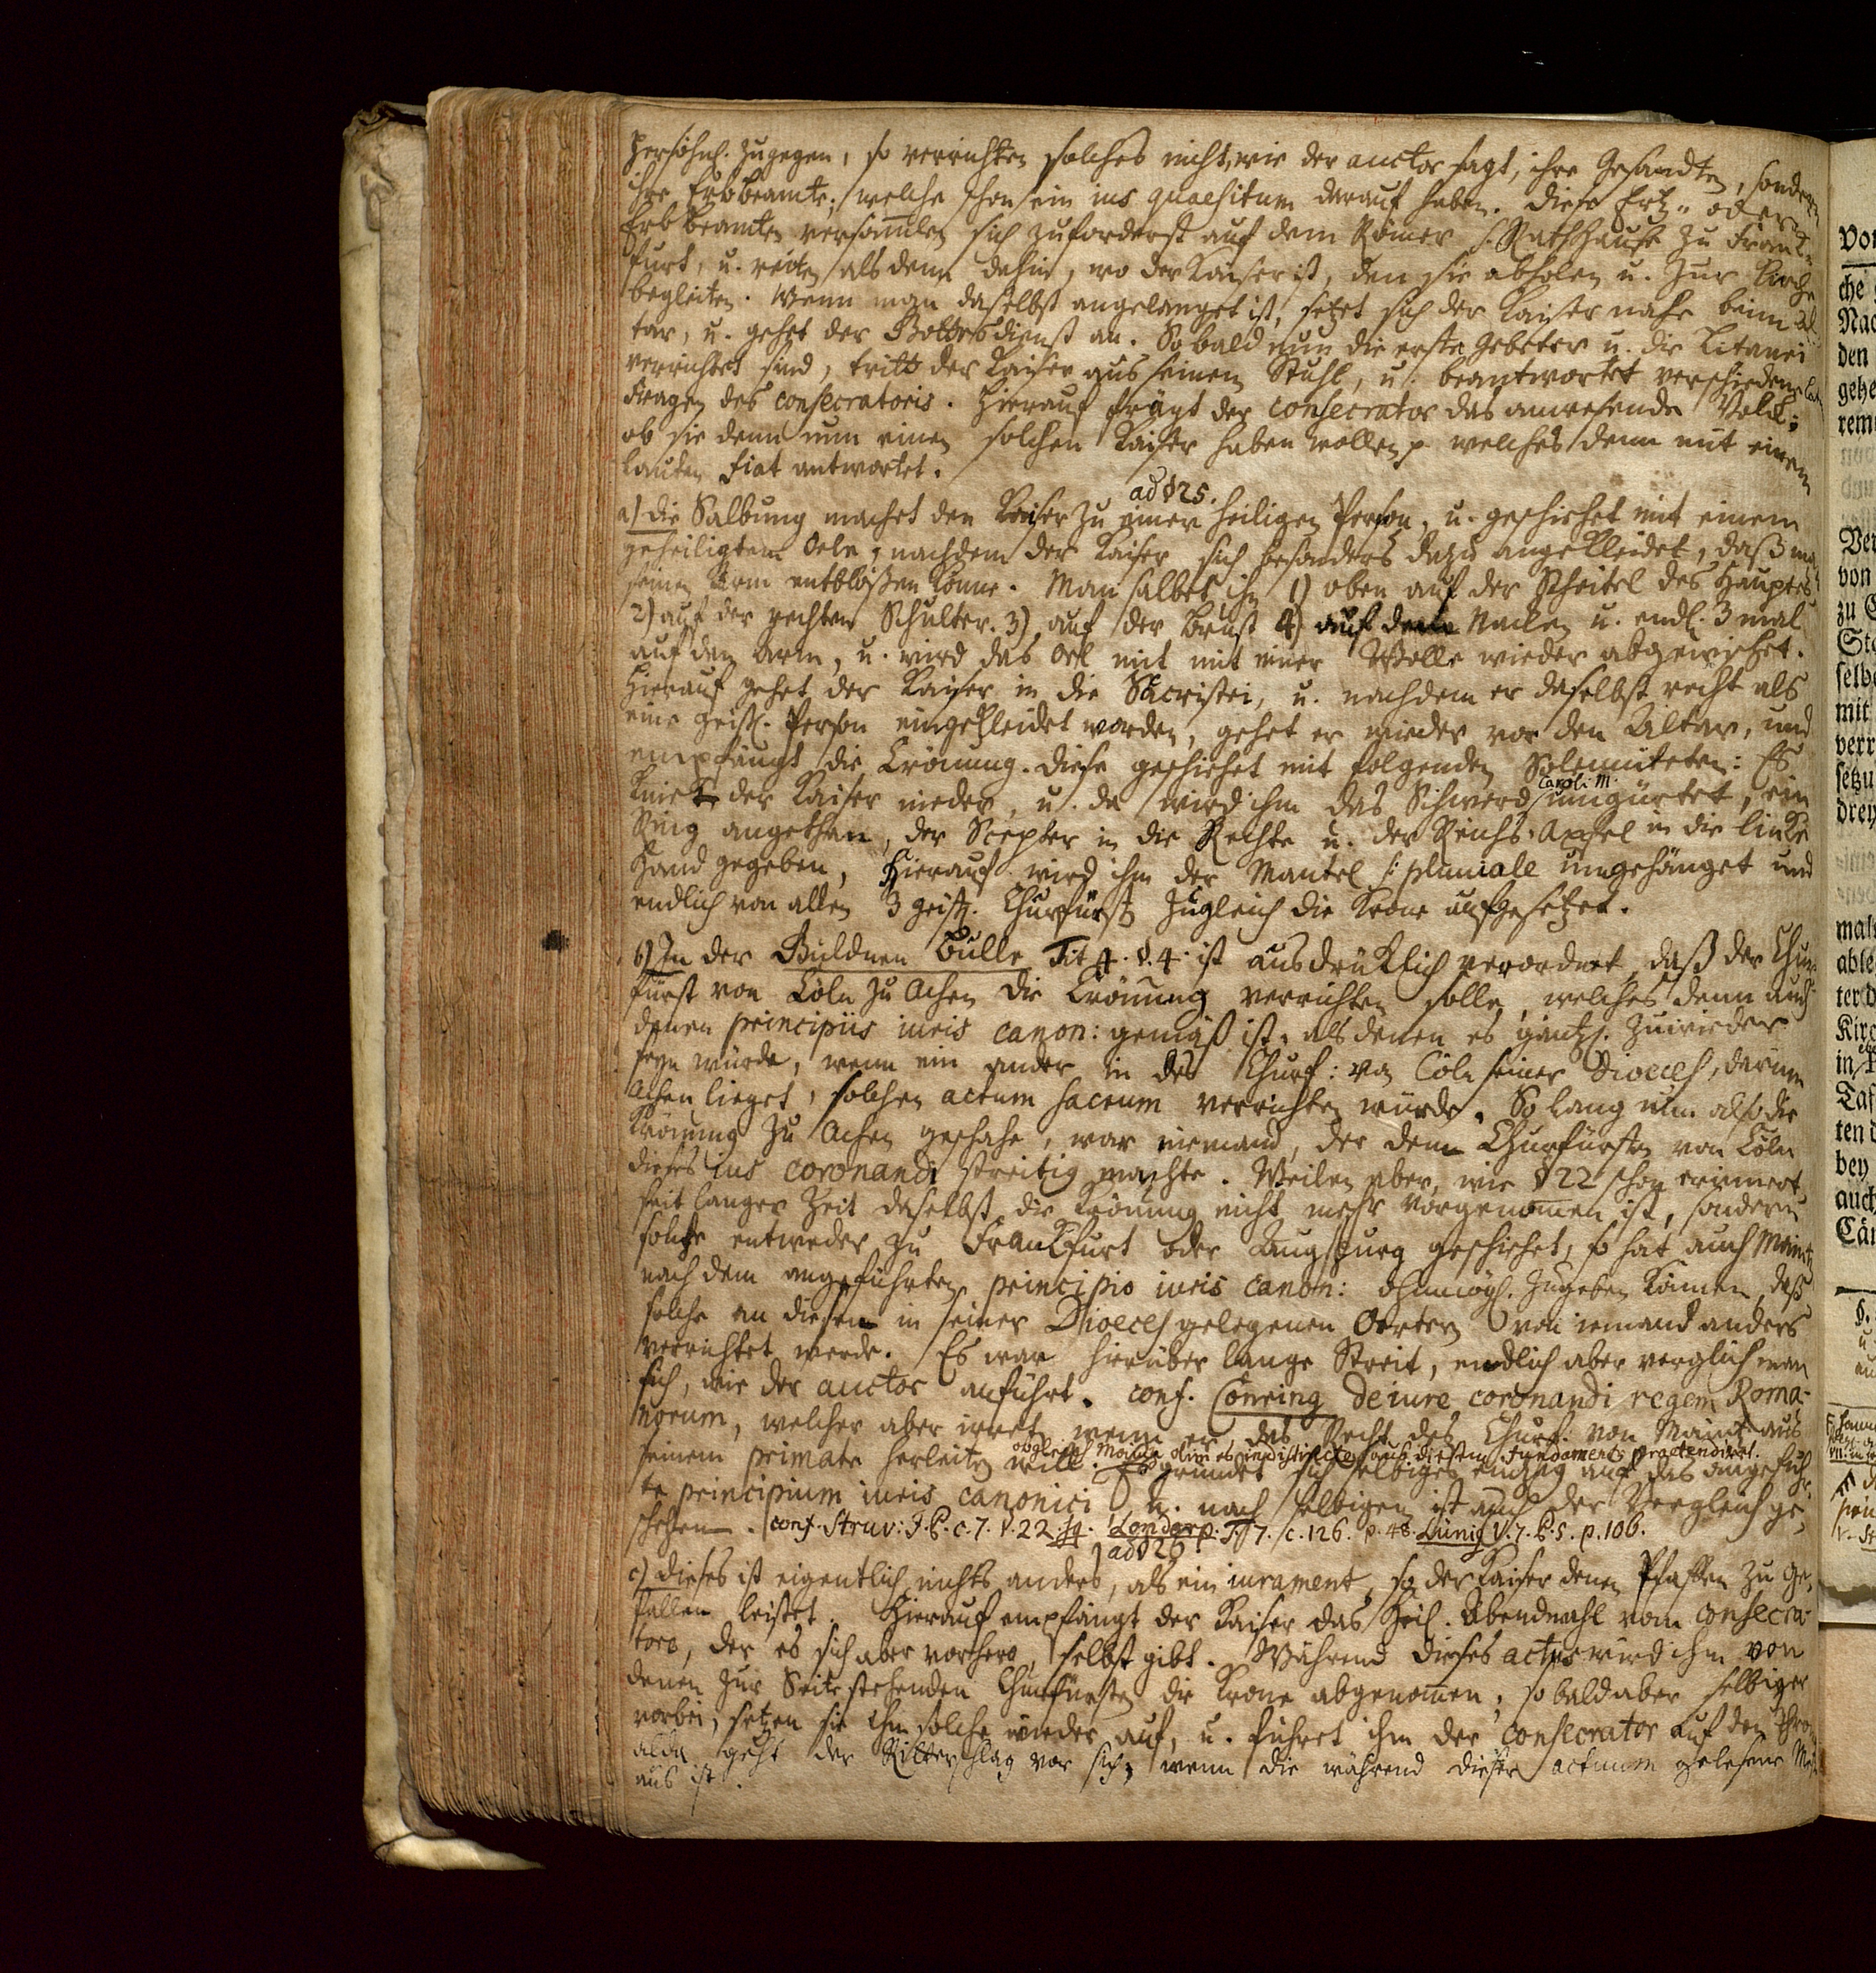 persöhnl. zugegen, so verrichten solches nicht, wie der auctor sagt, ihre Gesandten, sondern
ihre Erbbeamte, welche schon ein ius quaesitum darauf haben. Diese Ertz- oder
Erbbeamten versam̄len sich zuforderst auf dem Römer s. Rathhause zu Franck-
furt, u. reiten alsdenn dahin, wo der Kaiser ist, den sie abholen u. zur Kirche
begleiten. Wenn man daselbst angelanget ist, setzet sich der Kaiser nahe beim Al-
tar, u. gehet der Gottesdienst an. So bald nun die erste Gebeter u. die Litanei
verrichtet sind, tritt der Kaiser aus seinem Stuhl, u. beantwortet verschiedene lat.
Fragen des consecratoris. Hierauf frägt der consecrator das anwesende Volck:
ob sie denn nun einen solchen Kaiser haben wollen p welches denn mit einem
lauten fiat antwortet.
ad §25.
a) Die Salbung machet den Kaiser zu einer heiligen Person, u. geschiehet mit einem
geheiligten Oele, nachdem der Kaiser sich besonders dazu angekleidet, daß man
seinen Arm entblößen könne. Man salbet ihn 1) oben auf der Scheitel des Hauptes
2) auf der rechten Schulter. 3) auf der Brust 4) auf dem Nacken u. endl. 3 mal
auf den Arm, u. wird das Oel mit mit einer Wolle wieder abgewischet.
Hierauf gehet der Kaiser in die Sacristei, u. nachdem er daselbst recht als
eine geistl. Person eingekleidet worden, gehet er wieder vor den Altar, und
empfängt die Crönung. Diese geschiehet mit folgenden Solenniteten: Es
Caroli M.
kniet der Kaiser nieder, u. da wird ihm das Schwerd umgürtet, ein
Ring angethan, der Scepter in die Rechte u. der Reichs-Apfel in die lincke
Hand gegeben, Hierauf wird ihm der Mantel s. pluviale umgehänget und
endlich von allen 3 geistl. Churfürst. zugleich die Krone aufgesetzet.
b) In der Güldnen Bulle Tit 4. §. 4. ist ausdrücklich verordnet, daß der Chur-
fürst von Cöln zu Achen die Crönung verrichten solle, welches denn auch
denen principiis iuris canon: gemäß ist, als denen es gäntzl. zuwieder
seyn würde, wenn ein ander in des Churf: von Cöln seiner Dioeces, darinn
Achen lieget, solchen actum sacrum verrichten würde. So lang nun also die
Krönung zu Achen geschahe, war niemand, der dem Churfürsten von Cöln
dieses ius coronandi streitig machte. Weilen aber, wie §22 schon erinnert,
seit langer Zeit daselbst die Krönung nicht mehr vorgenom̄en ist, sondern
solche entweder zu Franckfurt oder Augspurg geschiehet, so hat auch Maintz
nach dem angeführten principio iuris canon: ohnmögl. zugeben können, daß
solche an diesen in seiner Dioeces gelegenen Oerter von iemand anders
verrichtet werde. Es war hierüber lange Streit, endlich aber verglich man
sich, wie der auctor anführt. conf. Conring de iure coronandi regem Roma-
norum, welcher aber irret, wenn er das Recht des Churf. von Maintz aus
obgleich Maintz olim es indistincte aus diesem Fundament praetendiret.
seinem primate herleiten will. Es gründet sich selbiges eintzig auf das angeführ-
te principium iuris canonici u. nach selbigen ist auch der Vergleich ge-
schehen. conf. Struv: J. P. c. 7. §. 22. sq. Londorp. T. 7. c. 126. p. 48. Lünig V. 7. P. S. p. 106.
ad §26
c) Dieses ist eigentlich nichts anders, als ein iurament, so der Kaiser denen Pfaffen zu ge-
fallen leistet. Hierauf empfängt der Kaiser das Heil. Abendmahl vom consecra-
tore, der es sich aber vorhero selbst gibt. Während dieses actus wird ihm von
denen zur Seite stehenden Churfürsten die Krone abgenom̄en, so bald aber selbiger
vorbei, setzen sie ihm solche wieder auf, u. führet ihm der consecrator auf den Thron
alda geht der Ritterschlag vor sich, wenn die während dieser actuum gelesene Meße
aus ist.